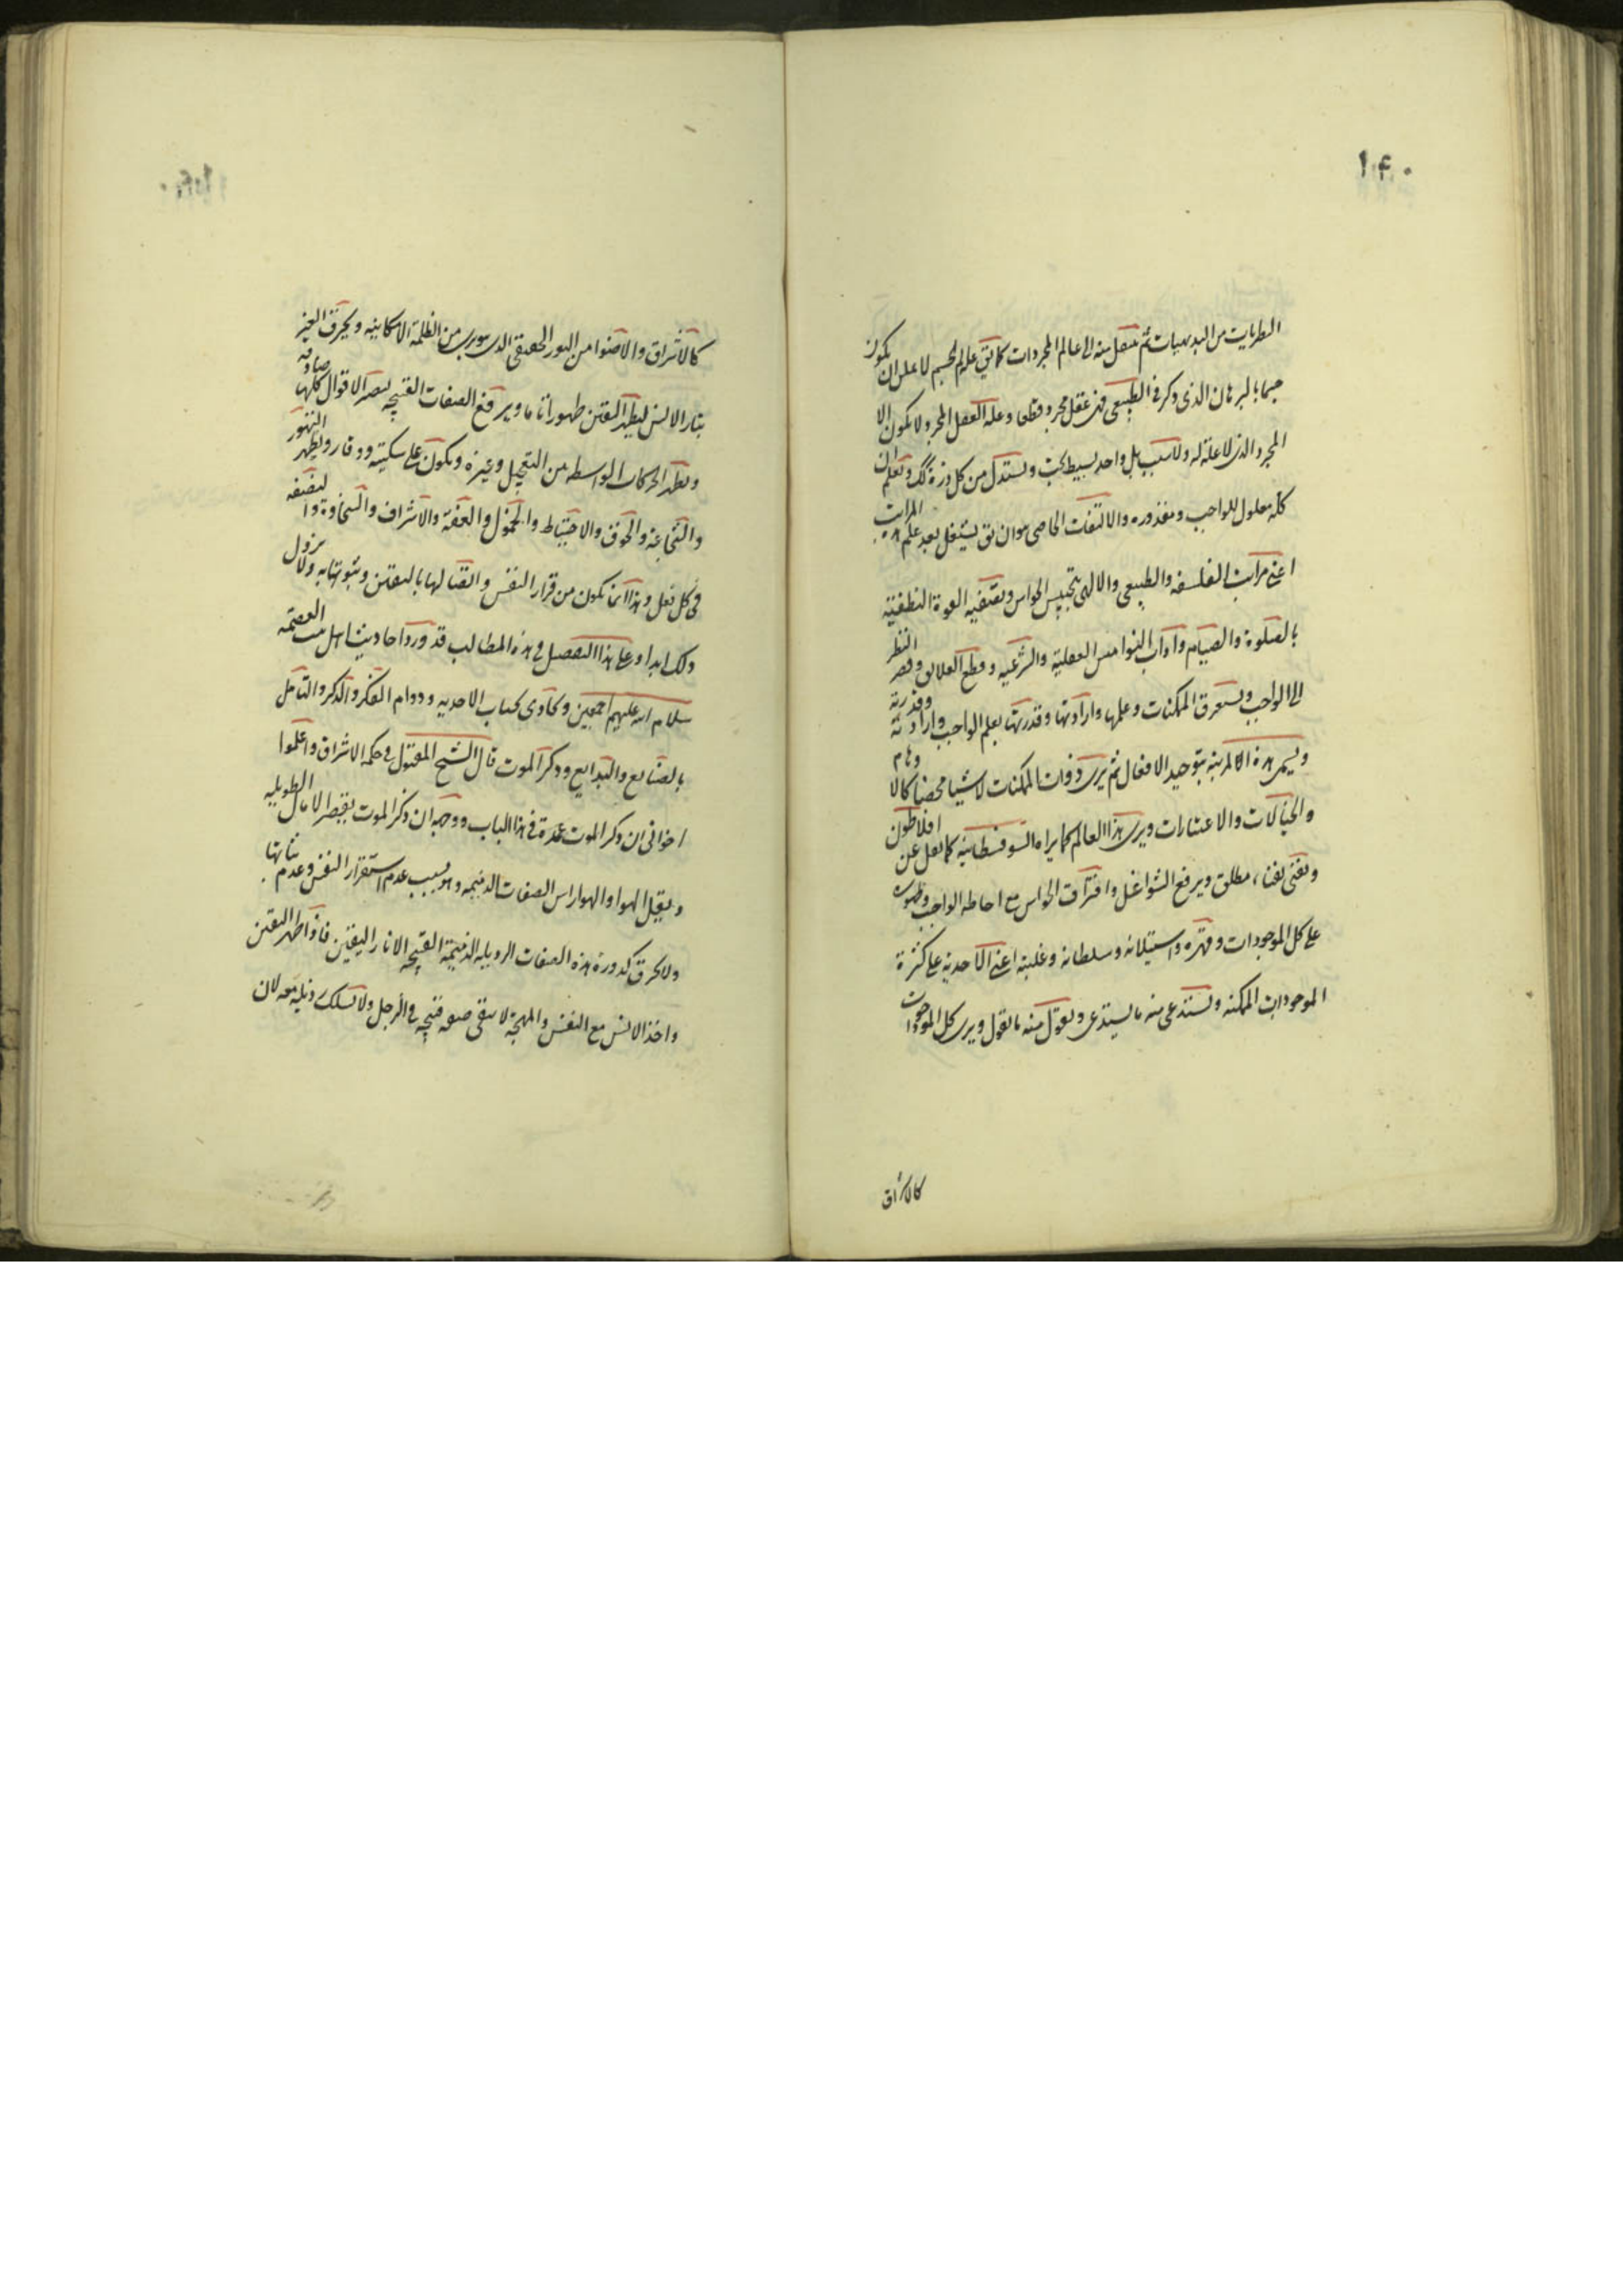 ۱۴۰
النظريات من البديهيات ثم ينتقل منه الى عالم المجردات كما يق علة الجسم لا يمكن ان يكون
جسما بالبرهان الذى ذكر فى الطبيعى فهى عقل مجرد قطعا وعلة العقل المجرد لا يكون الا
المجرد الذى لا علة له ولا سبب بل واحد بسيط بحت ويستدل من كل ذرة ويعلم ان
كله معلول للواجب ومقدوره والالتفات الخاصى هو ان يشتغل بعد علم هذه المراتب
اعنى مراتب الفلسفه والطبيعى والالهى بتحبيس الحواس وتصفيه القوة النطقيه
بالصلوة والصيام وآداب النواميس العقليه والشرعيه وقطع العلايق وقصر النظر
الى الواجب ويستغرق الممكنات وعلمها وارادتها وقدرتها بعلم الواجب وارادته وقدرته
ويسمى هذه المرتبه بتوحيد الافعال ثم يرى ذوات الممكنات لا شيئا محضا كالاوهام
والخيالات والاعتبارات ويرى هذا العالم كما يراه السوفسطائيه كما نقل عن افلاطون
ويفنى بفناء مطلق ويرفع الشواغل وافتراق الحواس مع احاطه الواجب
على كل الموجودات وقهره واستيلائه وسلطانه وغلبته اعنى الاحديه على كثرة
الموجودات الممكنه ويستدعى منه ما يستدعى ويقول منه ما يقول ويرى كل الموجودات
كالاشراق
كالاشراق والاضواء من النور الحقيقى الذى هو برى من الظلمة الامكانيه ويحرق الغير
بنار الانس ليظهر اليقين ظهورا تاما ويرفع الصفات القبيحه ليصير الاقوال كلها صادقه
ويظهر الحركات الواسطه من التعجيل وغيره ويكون على سكينه ووقار ويظهر التهور
والشجاعة والخوف والاحتياط والخمول والعفة والاشراف والسخاوة
فى كل فعل وهذا انما يكون من قرار النفس واتصالها باليقين وثبوتها به ولا يزول
ذلك ابدا وعلى هذا التفصيل فى هذه المطالب قد ورد احاديث اهل بيت العصمه
سلام الله عليهم اجمعين وكادى بحباب الاحديه ودوام الفكر والذكر والتامل
بالصنايع والبدايع وذكر الموت قال الشيخ المقتول فى حكمة الاشراق واعلموا
اخوانى ان ذكر الموت عمدة فى هذا الباب ووجه ان ذكر الموت يقصر الامال الطويله
ويقتل الهوا والهوا راس الصفات الذميمه وهو بسبب عدم استقرار النفس وعدم ثباتها
ولا يحرق كدورة هذه الصفات الرذيله الذميمة القبيحه الا نار اليقين فاذا ظهر اليقين
واخذ الانس مع النفس والمهجة لا يبقى صفه قبيحه فى الرجل ولا يسلك رذيله معه لان